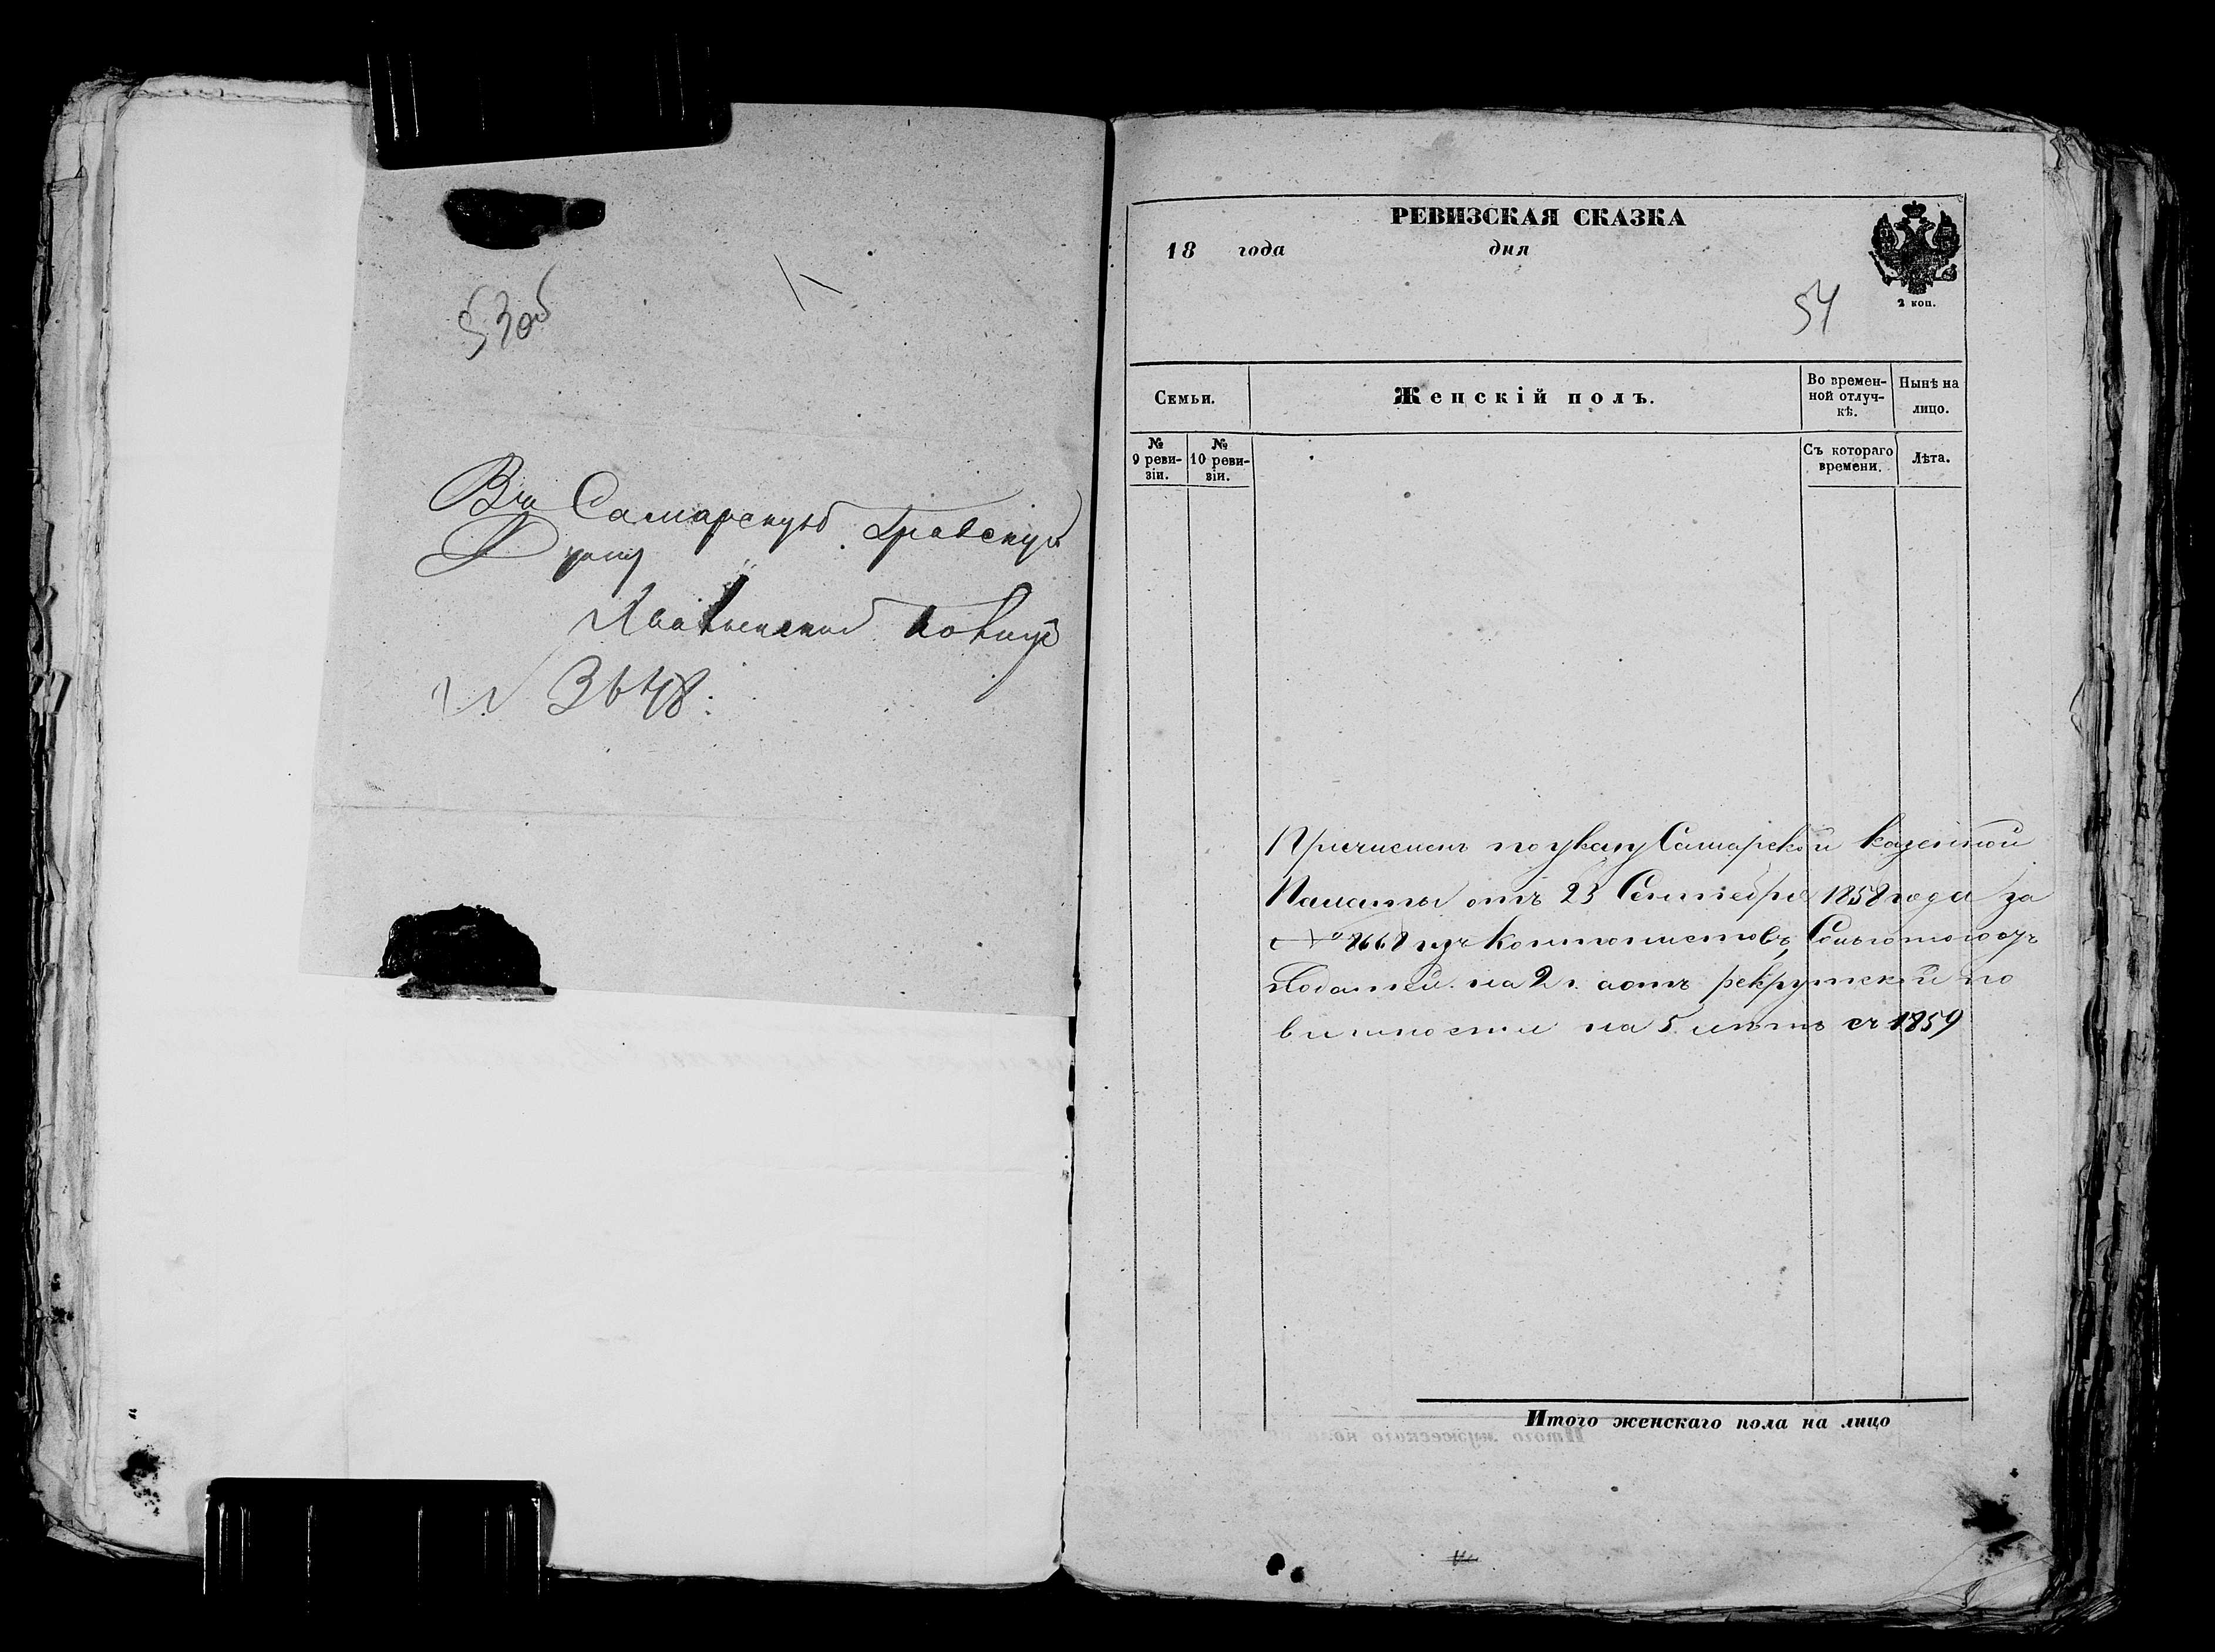 53об
Въ Самарскую Градскую
Думу
№ 3648.
РЕВИЗСКАЯ СКАЗКА
18 года дня
2 коп.
54
Семьи.
Женскій полъ.
Во времен-
ной отлуч-
кѣ.
Нынѣ на
лицо.
№
9 реви-
зіи.
№
10 реви-
зіи.
Съ котораго
времени.
Лѣта.
Причисленъ по указу Самарской казенной
Палаты отъ 23 Сентебря 1858 года за
№ 8668 изъ кантонистовъ, Сольготою отъ
Податей на 2 г. аотъ рекрутской по
винности на 5 лѣтъ съ 1859
Итого женскаго пола на лицо